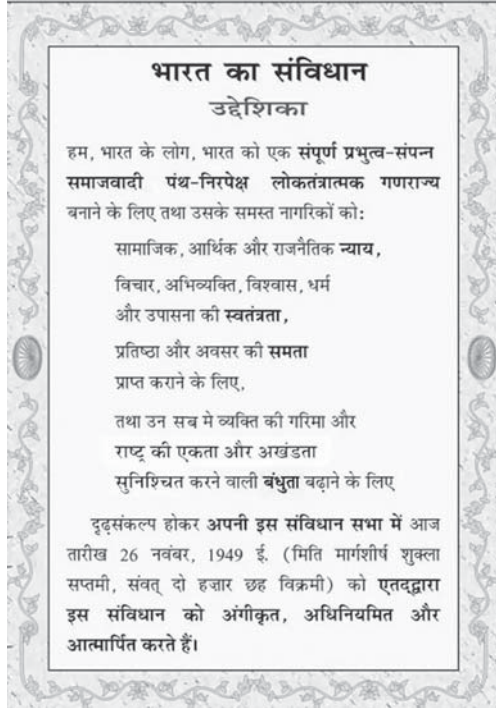 भारत का संविधान
उद्देशिका
हम, भारत के लोग, भारत को एक संपूर्ण प्रभुत्व-संपन्न
समाजवादी पंथ-निरपेक्ष लोकतंत्रात्मक गणराज्य
बनाने के लिए तथा उसके समस्त नागरिकों को:
सामाजिक, आर्थिक और राजनैतिक न्याय,
विचार, अभिव्यक्ति, विश्वास, धर्म
और उपासना की स्वतंत्रता,
प्रतिष्ठा और अवसर की समता
प्राप्त कराने के लिए,
तथा उन सब मे व्यक्ति की गरिमा और
राष्ट्र की एकता और अखंडता
सुनिश्चित करने वाली बंधुता बढ़ाने के लिए
दृढ़संकल्प होकर अपनी इस संविधान सभा में आज
तारीख 26 नवंबर, 1949 ई. (मिति मार्गशीर्ष शुक्ला
सप्तमी, संवत् दो हजार छह विक्रमी) को एतद्द्वारा
इस संविधान को अंगीकृत, अधिनियमित और
आत्मार्पित करते हैं।